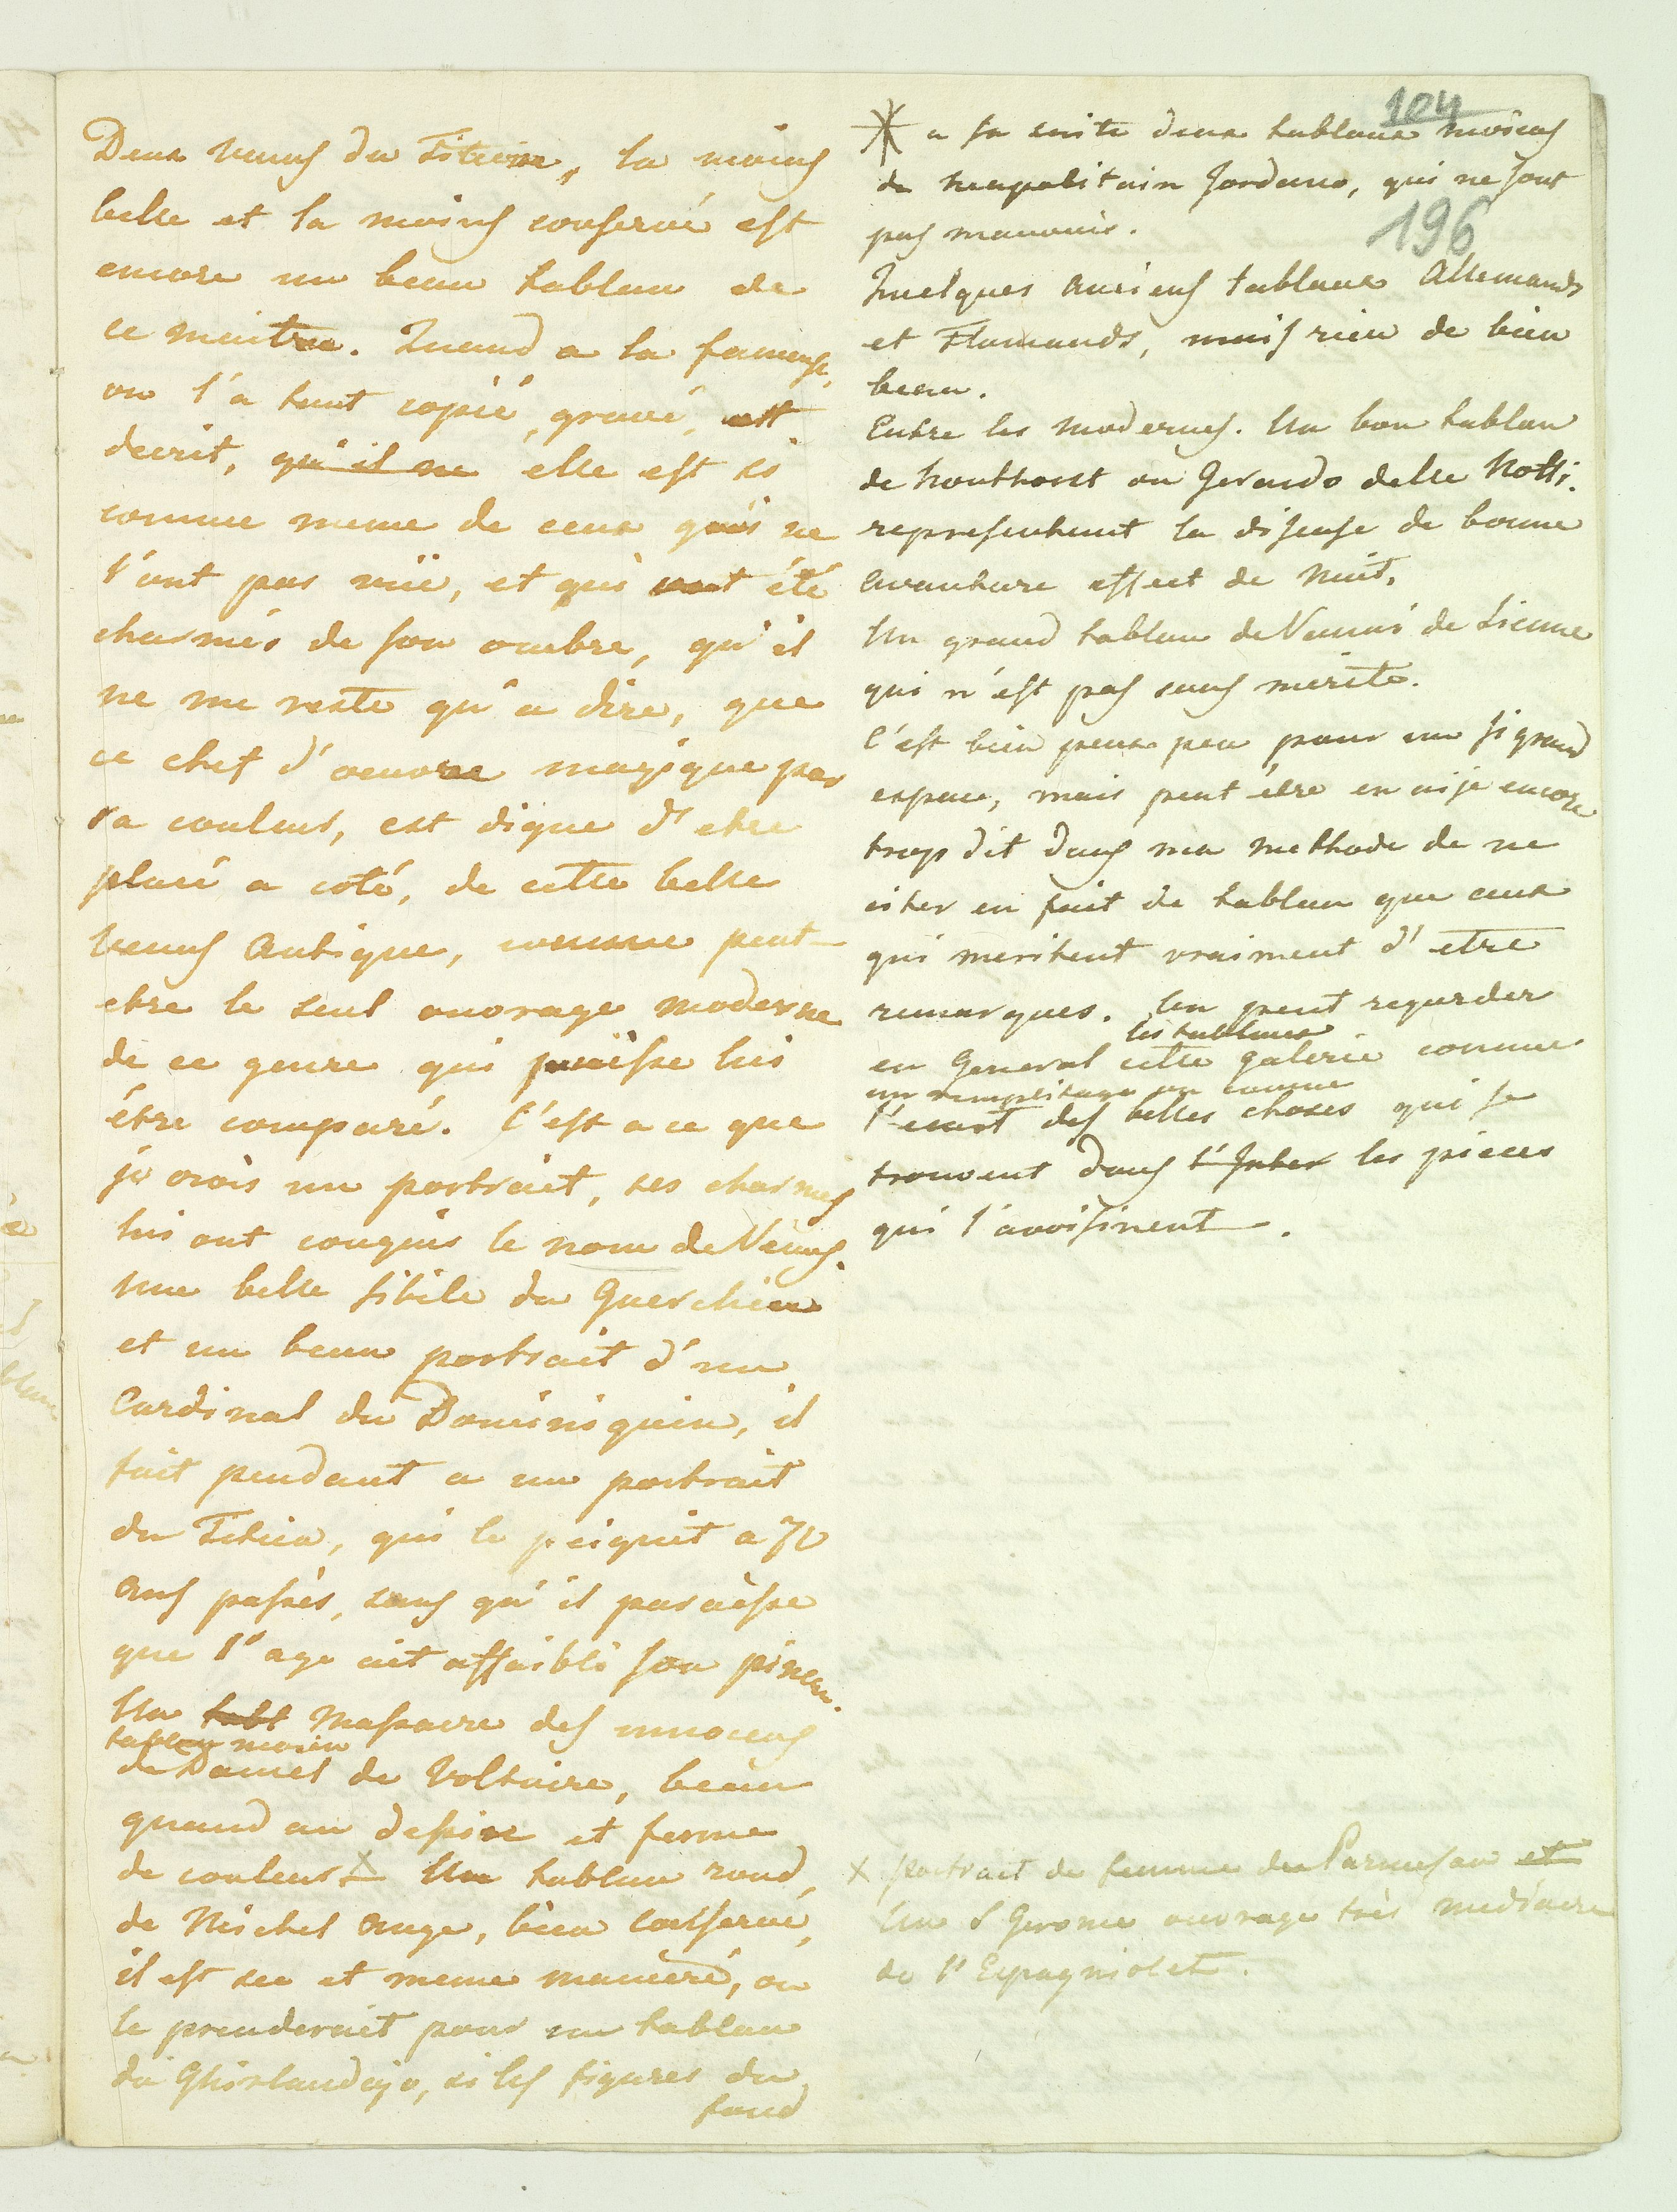 Deux venus du Titien, la moins
belle et la moins conservé est
encore un beau tableau de
ce maitre. Quand a la fameuse,
on l'a tant copié, gravé, et
decrit, qu'il ne elle est si
connue meme de ceux qui ne
l'ont pas vüe, et qui ont été
charmés de son ombre, qu'il
ne me reste qu'a dire, que
ce chef d'oeuvre magique par
sa couleur, est digne d'etre
placé a coté, de cette belle
venus antique, comme peut-
etre le seul ouvrage moderne
de ce genre qui puisse lui
être comparé. C'est a ce que
je crois un portrait, ses charmes
lui ont conquis le nom de Venus.
Une belle sibile du Guerchien
et un beau portrait d'un
Cardinal du Dominiquin, il
fait pendant a un portrait
du Titien, qui le peignit a 70
ans passés, sans qu'il paraisse
que l'age ait affaibli son pinceau.
Un tabl Massacre des innocens
tableau moien
de Daniel de Voltaire, beau
quand au dessine et ferme
de couleur X Un tableau rond,
de Michel Ange, bien conservé,
il est sec et meme manieré, on
le prenderait pour un tableau
du Ghirlandajo, si les figures du
fond
104
* a sa suite deux tableaux moiens
du neapolitain Jordano, qui ne sont
pas mauvais.
196
Quelques anciens tableaux Allemands
et Flamands, mais rien de bien
beau.
Entre les modernes. Un bon tableau
de Honthorst ou Gerardo delle Notti.
representant la diseuse de bonne
avanture effect de Nuit.
Un grand tableau de Vanni de Sienne
qui n'est pas sans merite.
C'est bien peux peu pour un si grand
espace, mais peut être en ai je encore
trop dit dans ma methode de ne
citer en fait de tableau que ceux
qui meritent vraiment d'etre
remarques. On peut regarder
les tableaux
en General cette galerie comme
un remplitage ou comme
l'ecart des belles choses qui se
trouvent dans l'Inter les pieces
qui l'avoisinent.
X portrait de femme du Parmesan et
Un S Gerome ouvrage très mediocre
de l'Espagniolet.